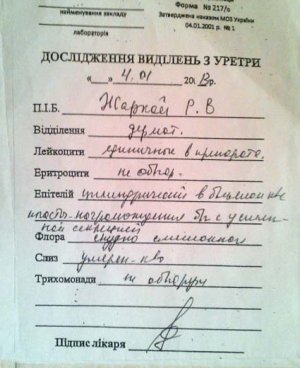 найменування закладу
лабораторія
Форма № 217/о
Затверджена наказом МОЗ України
04.01.2001 р. № 1
ДОСЛІДЖЕННЯ ВИДІЛЕНЬ З УРЕТРИ
"___" 4.01 20 13 р.
П.І.Б. Жаркой Р. В
Відділення дермат.
Лейкоцити единичные в препарате
Еритроцити не обнар.
Епітелій цилиндрический в большом кве
нагромождения с усилен-
ной секрецией
Флора скудно смешанная
Слиз умерен. кво
Трихомонади не обнаруж
Підпис лікаря